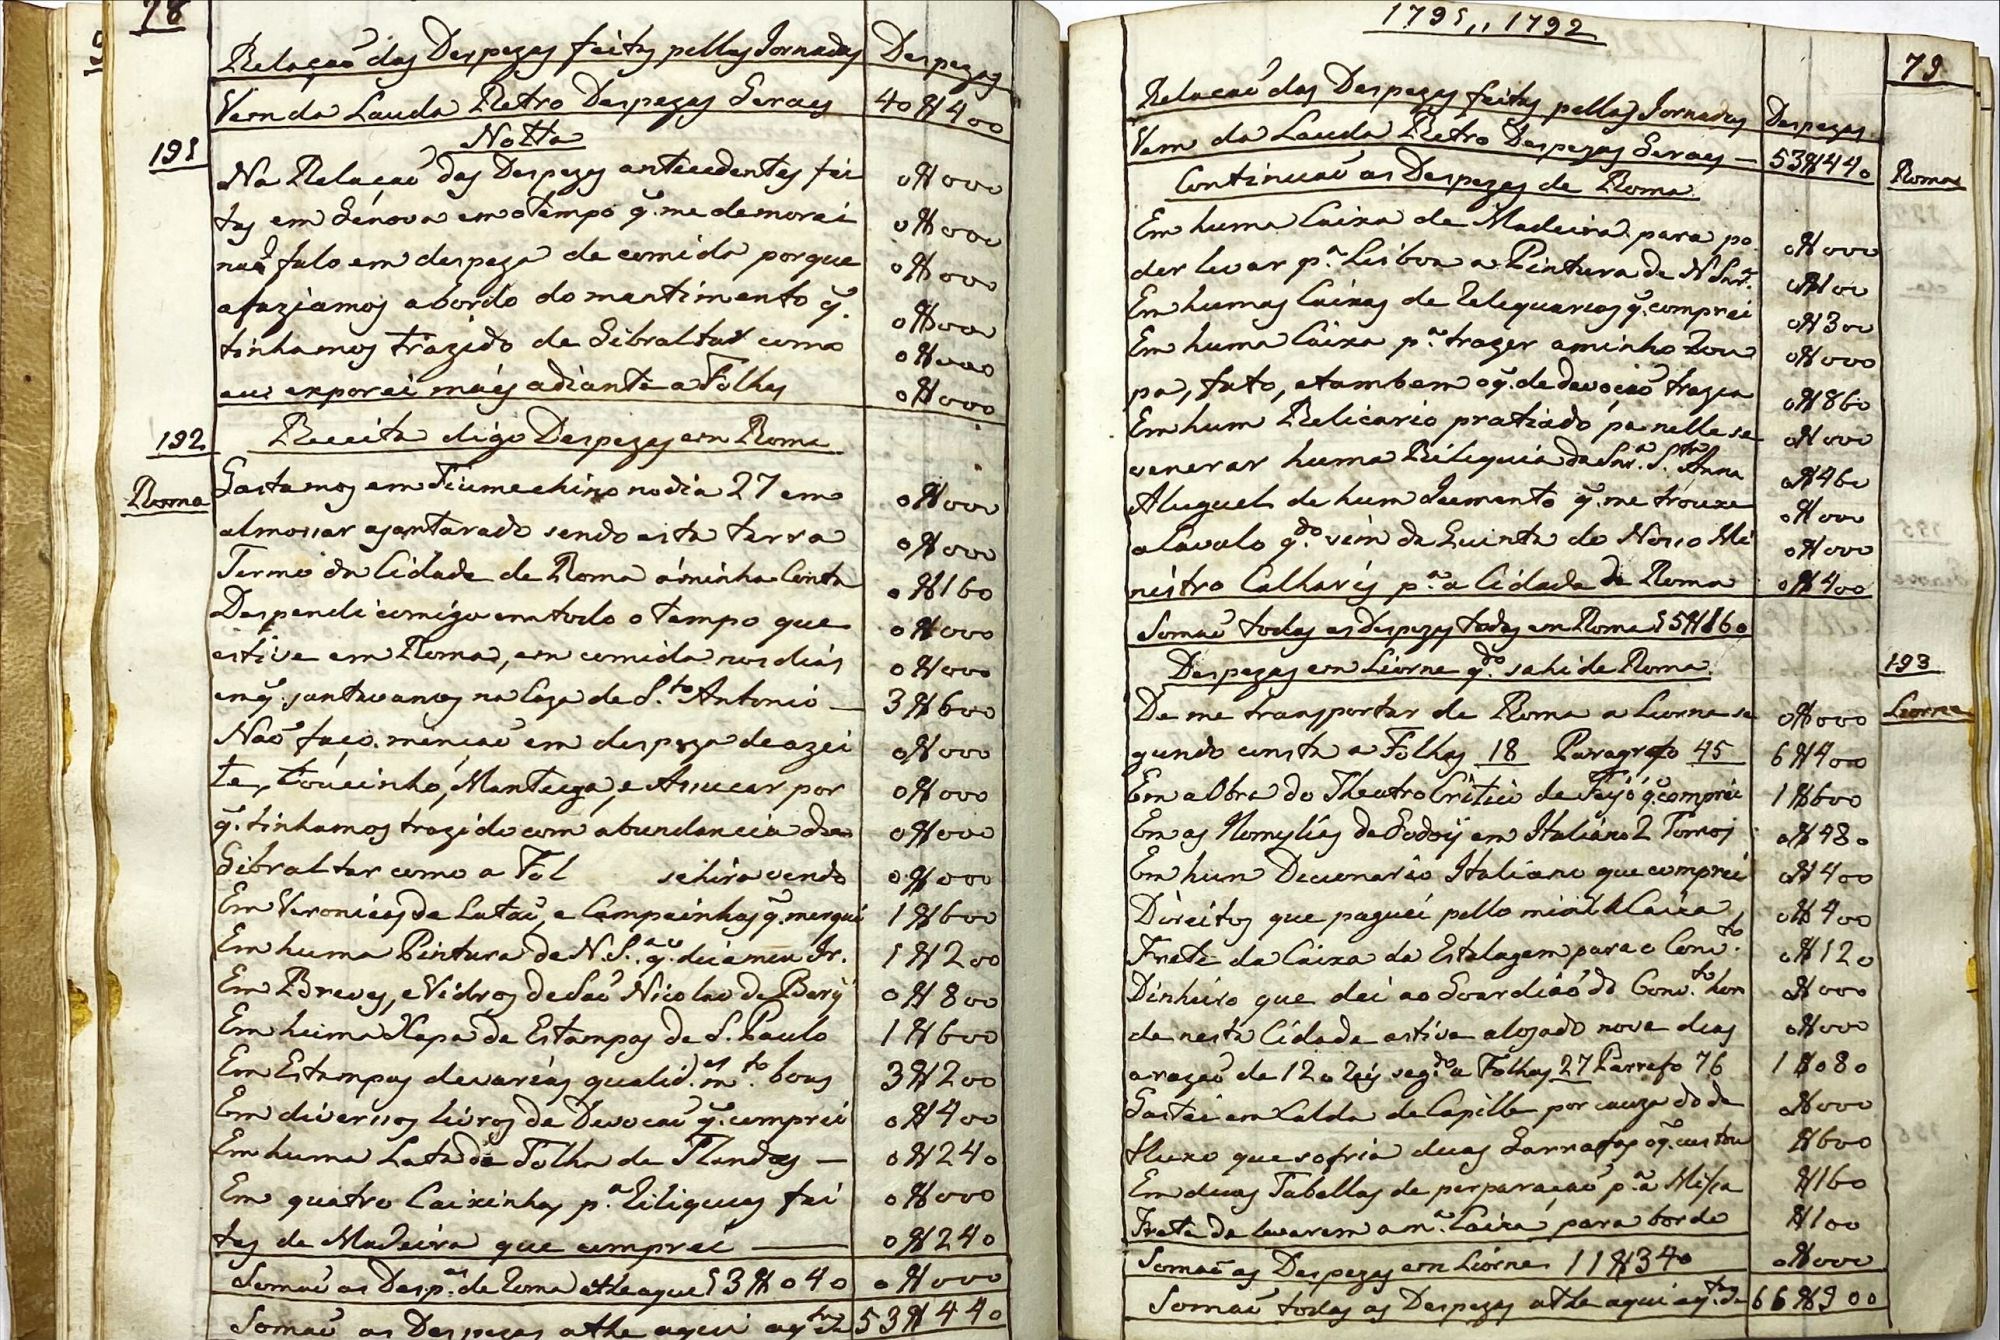 78
Relação das Despezas feitas pellas Jornadas Despezas
Vem da Lauda Retro Despezas Geraes 40H400
Notta
191
Na Relação das Despezas antecedentes fei 0H000
tas em Génova em o tempo q.̃ me demorei 0H000
naõ falo em despeza de comida porque 0H000
a faziamos abordo do mantimento q.̃ 0H000
tinhamos trazido de Gibraltar como 0H000
eu exporei máis adiante a Folhas 0H000
192 Receita digo Despezas em Roma
Roma
Gastamos em Fiumechino no dia 27 em 0H000
almossar ajantarado sendo esta terra 0H000
Termo da Cidade de Roma á minha Conta 0H160
Despendi comigo em todo o tempo que 0H000
estive em Roma, em comida nos diás 0H000
em q.̃ jantavamos na Caza de S.to Antonio — 3H600
Naõ faço mençaõ em despeza de azei 0H000
te, Toucinho, Manteiga, e Assucar por 0H000
q.̃ tinhamos trazido com abundancia de 0H000
Gibraltar como a Fol se hirá vendo 0H000
Em Veronicas de Lataõ, e Campainhas q.̃ merquei 1H600
Em huma Pintura de N. S.ra q.̃ dei á meu Ir. 1H200
Em Breves, e Vidros de Saõ Nicolao de Bary 0H800
Em huma Mapa de Estampas de S. Paulo 1H600
Em Estampas de varias qualid.es m.to boas 3H200
Em diversos livros de Devoçaõ q.̃ comprei 0H400
Em huma Lata de Folha de Flandes — 0H240
Em quatro Caixinhas p.a Riliquias fei 0H000
tas de Madeira que comprei — 0H240
Somaõ as Desp.as de Roma athe aqui 13H040 0H000
Somaõ as Despezas athe aqui a q.tia de 53H440
1791,, 1792
79
Relacaõ das Despezas feitas pellas Jornadas Despezas
Vem da Lauda Retro Despezas Geraes — 53H440
Continuaõ as Despezas de Roma
Roma
Em huma Caixa de Madeira para po 0H000
der levar p.a Lisboa a Pintura de N Snr.a 0H100
Em humas Caixas de Relequarios q.̃ comprei 0H300
Em huma Caixa p.a trazer a minha Rou 0H000
pa, fato, e tambem o q.̃ de devoçaõ trazia 0H860
Em hum Relicario pratiado pa nelle se 0H000
venerar huma Riliquia da Snr.a S.ta Anna 0H460
Aluguel de hum Jumento q.̃ me trouxe 0H000
a Cavalo q.do vim da Quinta do Nosso Mi 0H000
nistro Calharis p.a a Cidade de Roma 0H400
Somaõ todas as Despezas todas em Roma 15H160
Despezas em Liorne q.do sahi de Roma
193
Liorne
De me transportar de Roma a Liorne se 0H000
gundo consta a Folhas 18 Paragrafo 45 6H400
Em a Obra do Theatro Critico de Feijó q.̃ comprei 1H600
Em as Homylias de Godoÿ em Italiano 2 Tomos 0H480
Em hum Decionario Italiano que comprei 0H400
Direitos que paguei pello mial da Caixa 0H400
Frete da Caixa da Estalagem para o Conv.to 0H120
Dinheiro que dei ao Guardiaõ do Conv.to hon 0H000
de nesta Cidade estive alojado nove dias 0H000
a razaõ de 120 reis seg.do a Folhas 27 Parrafo 76 1H080
Gastei em Calda de Capille por cauza do de 0H000
fluxo que sofria duas Garrafas o q.̃ custou H600
Em duas Tabellas de perparaçaõ p.a a Missa H160
Frete de levarem a m.a Caixa para bordo H100
Somaõ as Despezas em Liorne 11H340 0H000
Somaõ todas as Despezas athe aqui a q.tia de 66H900